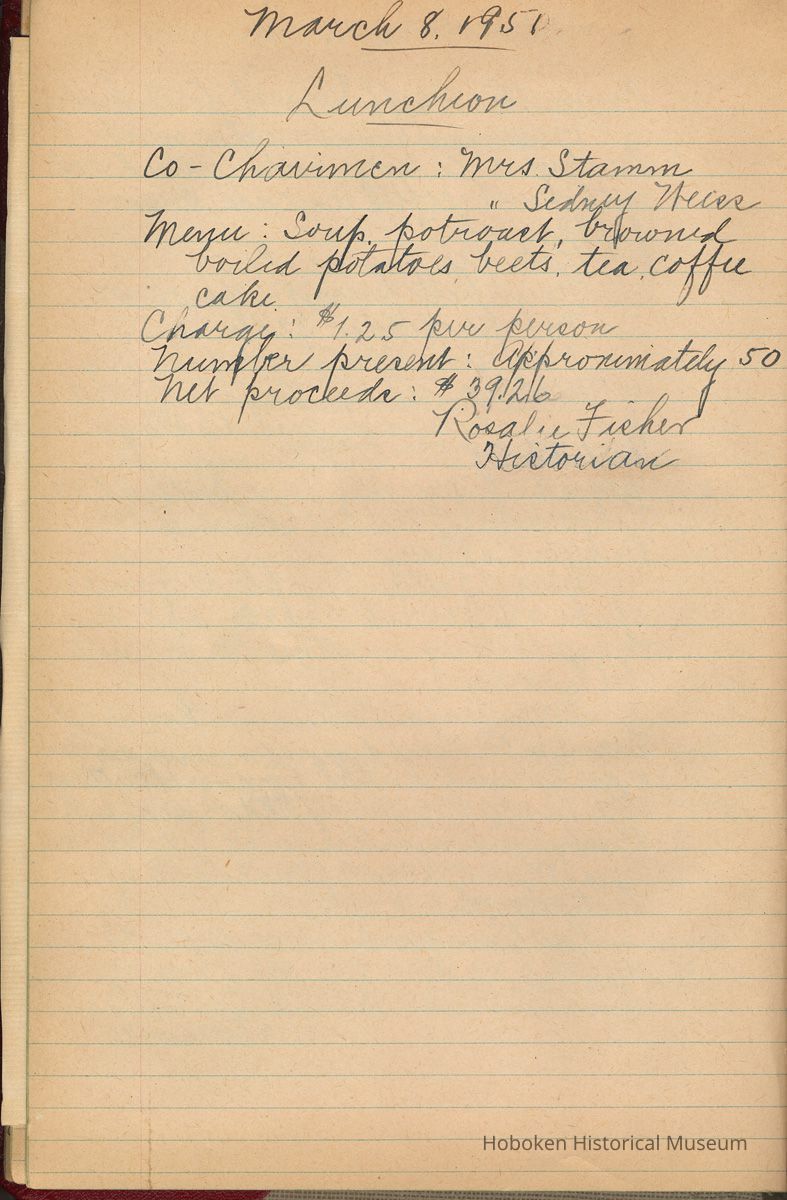 March 8, 1951
Luncheon
Co-Chairmen: Mrs. Stamm
" Sedney Weiss
Menu: Soup, potroast, browned
boiled potatoes, beets, tea, coffee
cake
Charge: $1.25 per person
Number present: Approximately 50
Net proceeds: $39.26
Rosalie Fisher
Historian
Hoboken Historical Museum